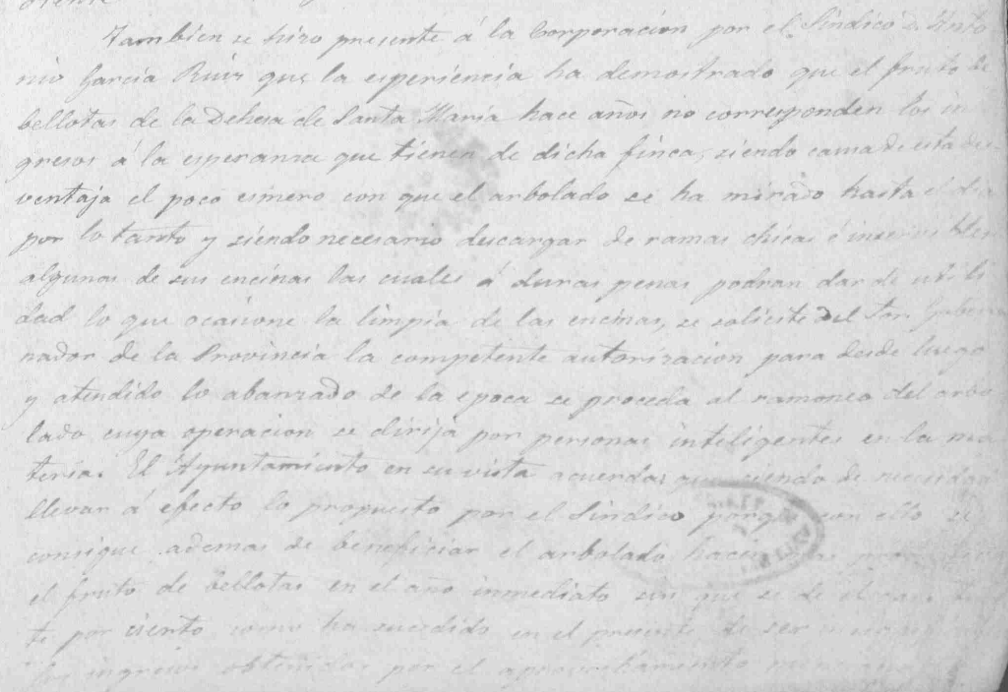 Tambien se hizo presente á la Corporacion por el Síndico D. Anto
nio Garcia Ruiz que la esperiencia ha demostrado que el fruto de
bellotas de la Dehesa de Santa Maria hace años no corresponden los in
gresos á la esperanza que tienen de dicha finca, siendo causa de esta des
ventaja el poco esmero con que el arbolado se ha mirado hasta el dia
por lo tanto y siendo necesario descargar de ramas chicas é inservibles
algunas de sus encinas las cuales á duras penas podran dar de utili
dad lo que ocasione la limpia de las encinas, se solicite del Sor. Gober
nador de la Provincia la competente autorizacion para desde luego
y atendido lo abanzado de la epoca se proceda al ramoneo del arbo
lado cuya operacion se dirija por personas inteligentes en la ma
teria. El Ayuntamiento en su vista acuerda, que siendo de necesidad
llevar á efecto lo propuesto por el Síndico porque con ello se
consigue ademas de beneficiar el arbolado
el fruto de bellotas en el año inmediato sin que se dé el caso
te por ciento como ha sucedido en el presente de ser
los ingresos obtenidos por el aprovechamiento